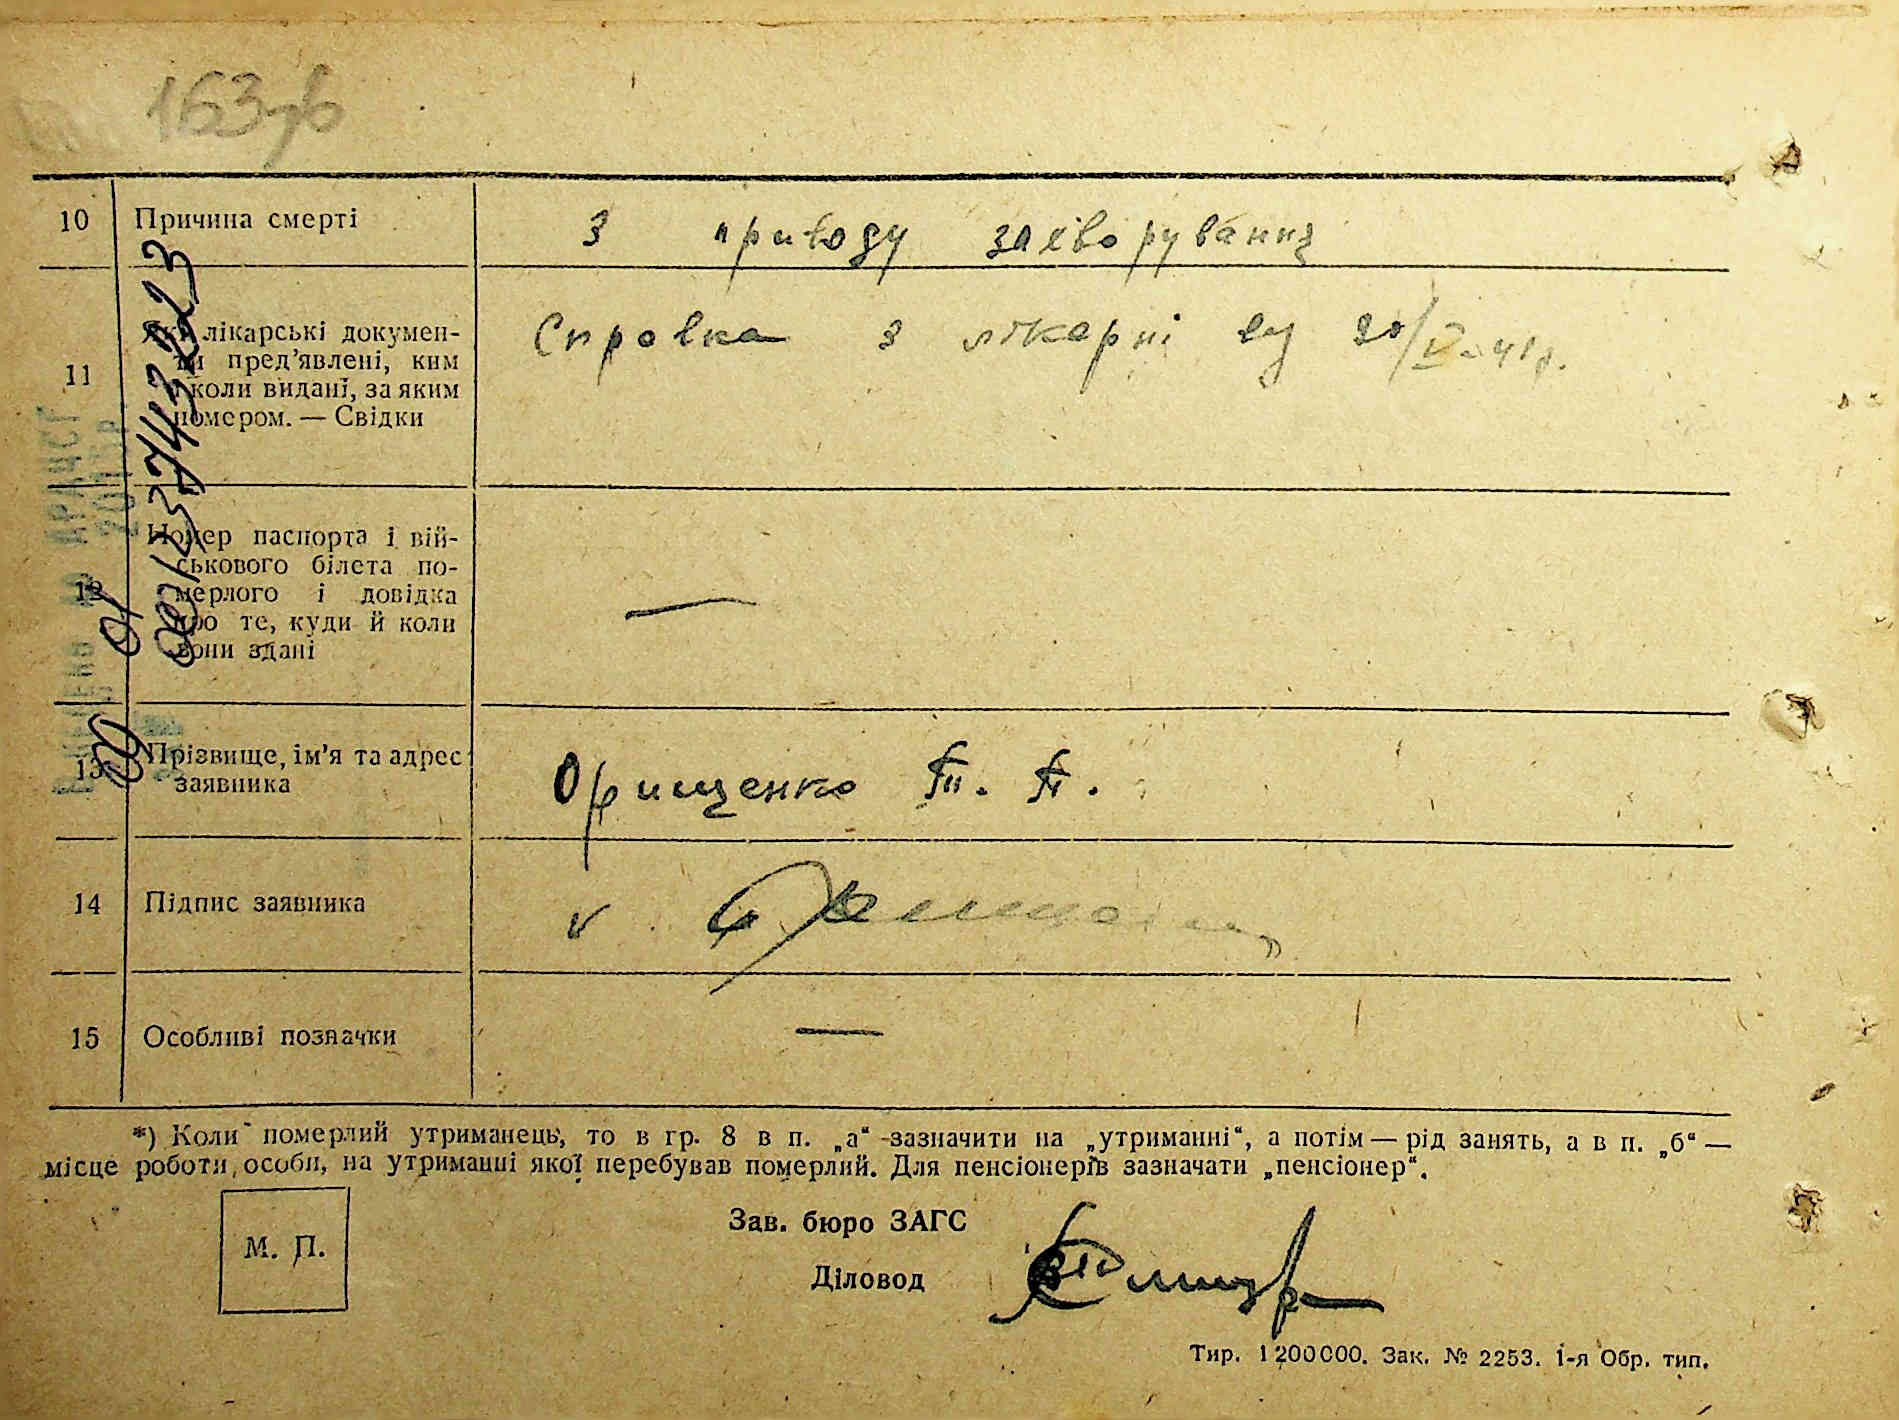 163зв
10 Причина смерті З приводу захворування
11 Які лікарські докумен-
ти пред’явлені, ким
і коли видані, за яким
номером. — Свідки
Справка з лікарні від 20/V-41р.
12 Номер паспорта і вій-
ськового білета по-
мерлого і довідка
про те, куди й коли
вони здані
—
13 Прізвище, ім’я та адрес
заявника
Орищенко П. П.
14 Підпис заявника v
15 Особливі позначки —
*) Коли померлий утриманець, то в гр. 8 в п. „а“ зазначити на „утриманні“, а потім — рід занять, а в п. „б“ —
місце роботи, особи, на утриманні якої перебував померлий. Для пенсіонерів зазначати „пенсіонер“.
М. П.
Зав. бюро ЗАГС
Діловод
Тир. 1200000. Зак. № 2253. 1-я Обр. тип.